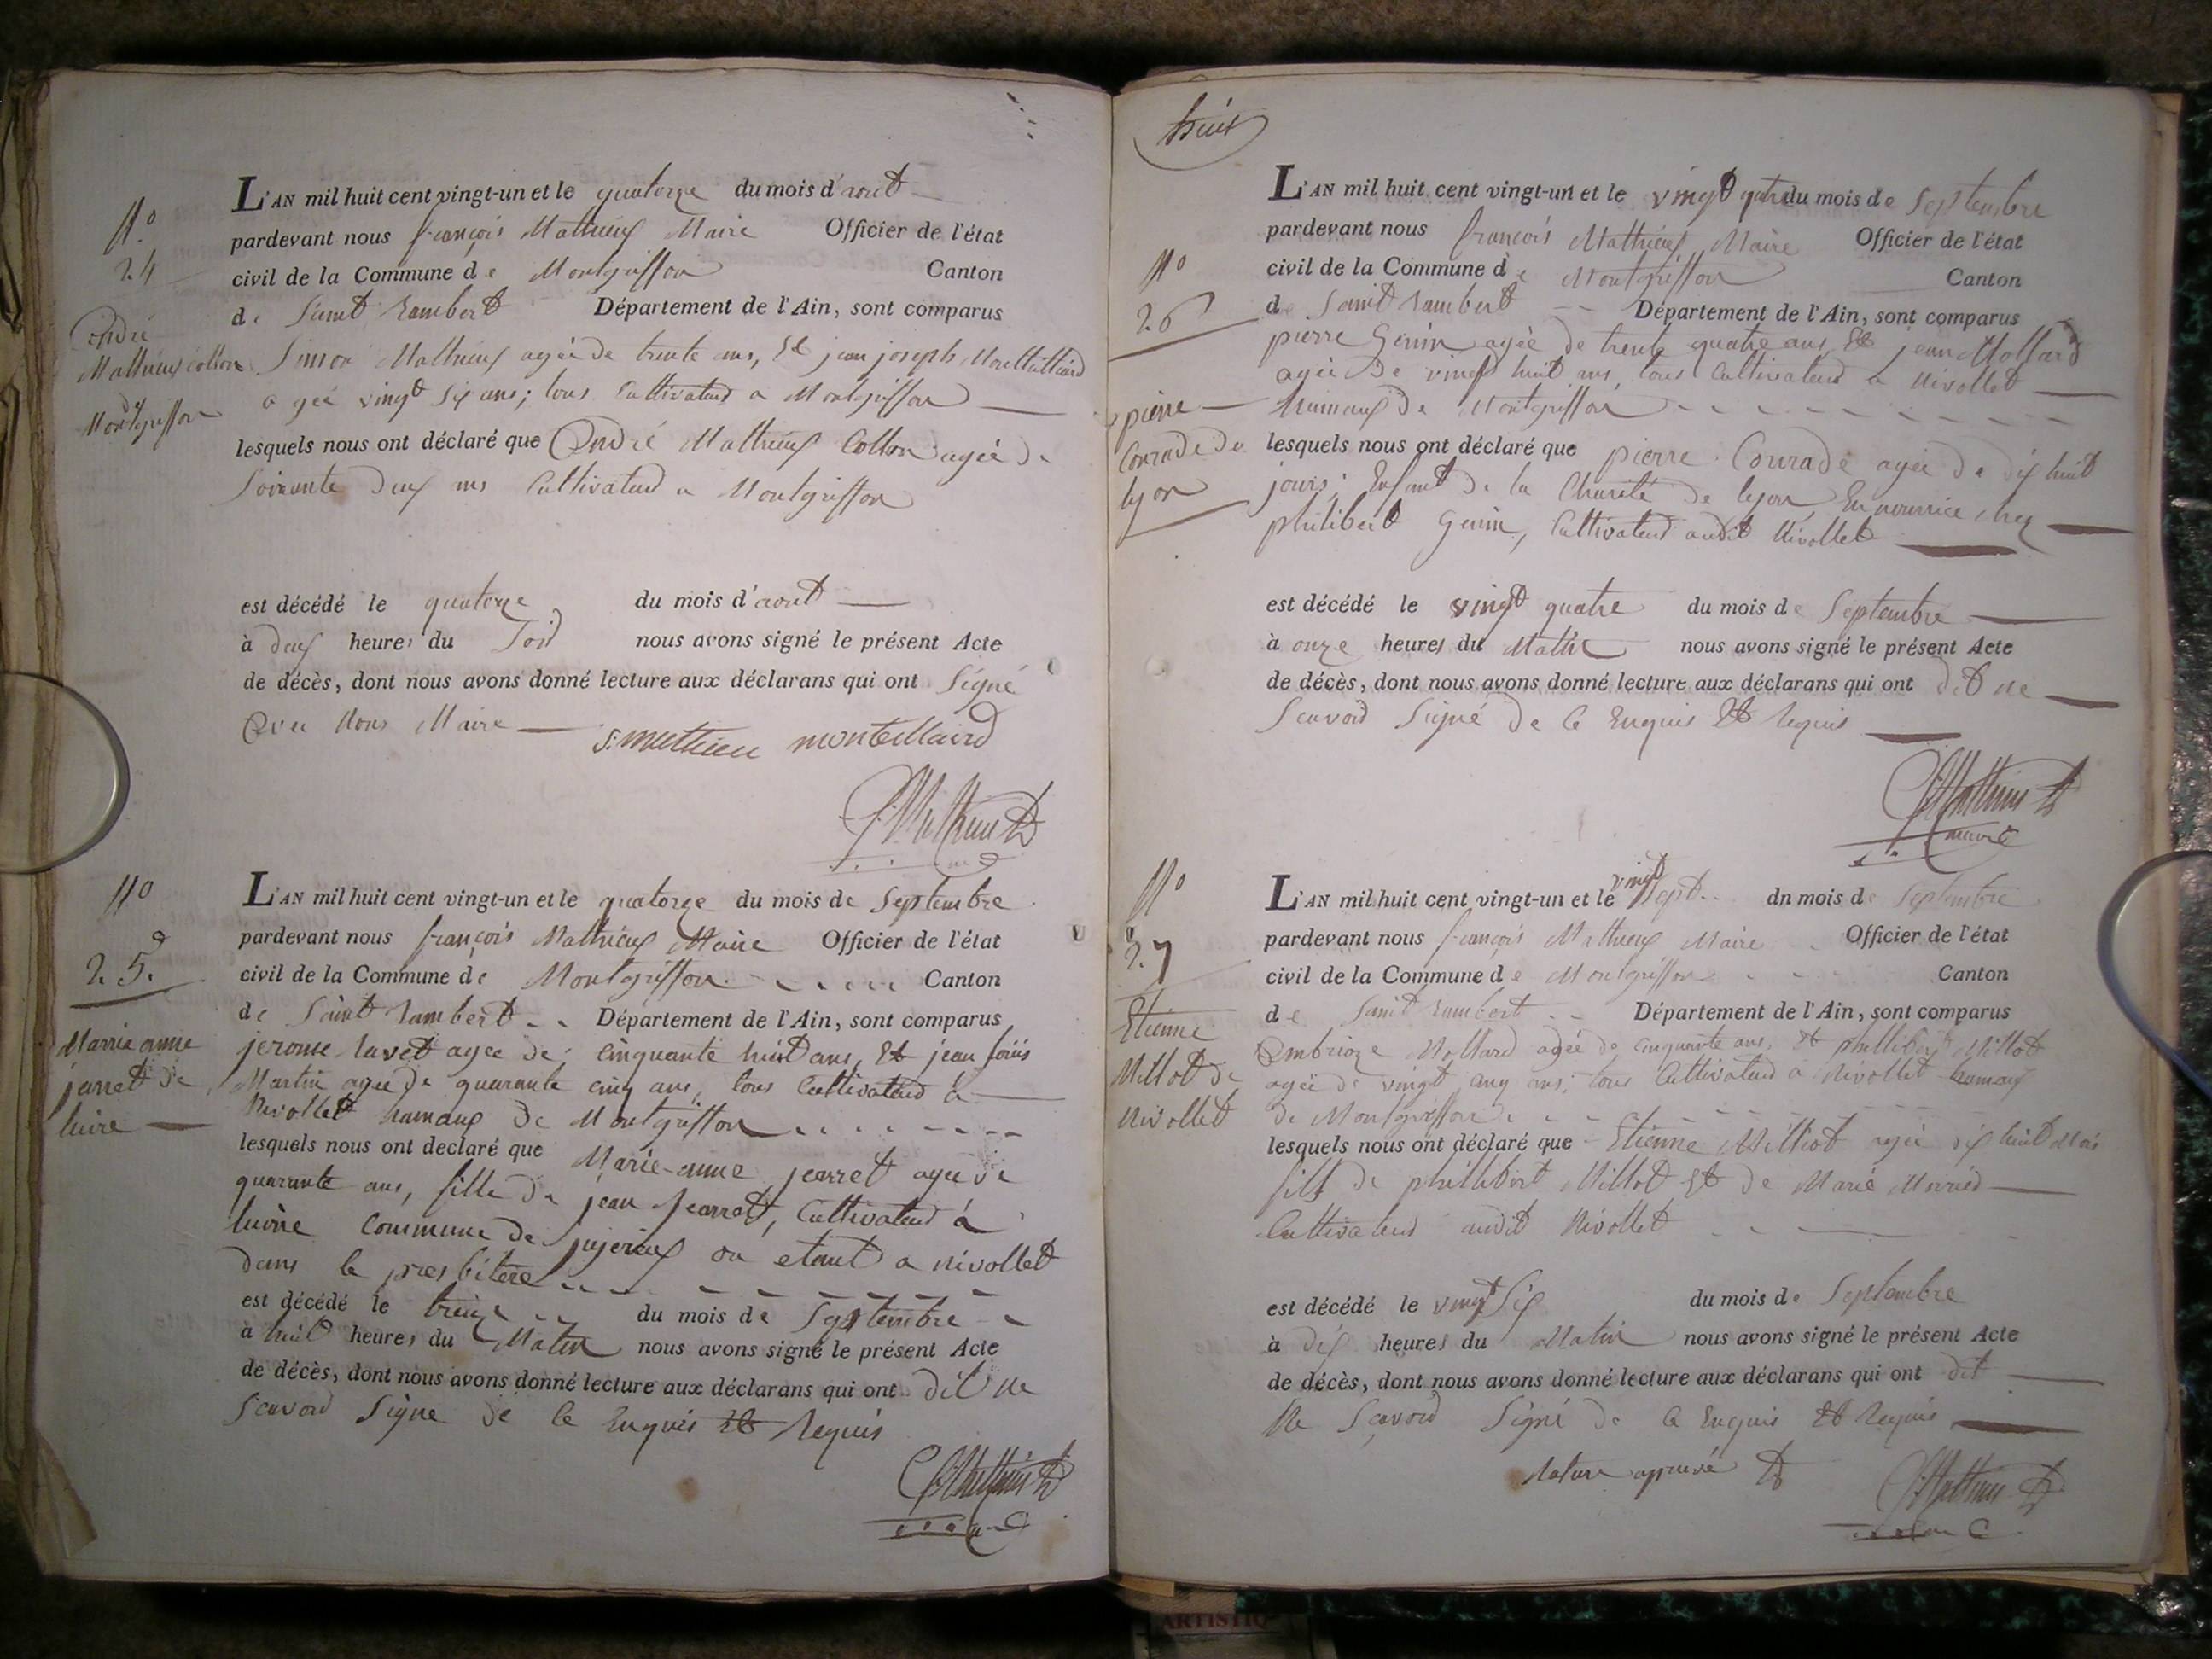 N.o
24
André
Mathieux collon
de
Montgriffon
L'AN mil huit cent vingt-un et le quatorze du mois d'aout
pardevant nous françois Mathieux Maire Officier de l'état
civil de la Commune de Montgriffon Canton
de Saint Rambert Département de l'Ain, sont comparus
Simon Mathieux agée de trente ans, Et jean joseph Montillard
agée vingt six ans; tous Cultivateurs a Montgriffon
lesquels nous ont déclaré que André Mathieux Collon agée de
Soixante deux ans Cultivateur a Montgriffon
est décédé le quatorze du mois d'aout
à deux heures du Soir nous avons signé le présent Acte
de décès, dont nous avons donné lecture aux déclarans qui ont Signé
Avec Nous Maire
s. mathieu montellaird
N.o
25.
Marrie anne
jarret de
luire
L'AN mil huit cent vingt-un et le quatorze du mois de Septembre
pardevant nous françois Mathieux Maire Officier de l'état
civil de la Commune de Montgriffon Canton
de Saint Rambert Département de l'Ain, sont comparus
jerome Lavet agee de; Cinquante huit ans, Et jean louis
Martin agee de quarante cinq ans, tous Cultivateurs a
Nivollet hamaux de Montgriffon
lesquels nous ont declaré que Marie-anne jearret agee de
quarante ans, fille de jean Jearret, Cultivateur à
luire Commune de jujerieux ou etant a nivollet
dans le presbitere
est décédé le treize du mois de Septembre
à huit heures du Matin nous avons signé le présent Acte
de décès, dont nous avons donné lecture aux déclarans qui ont dit ne
Scavoir Signe de ce Enquis Et Requis
huit
N.o
26
pierre
Conrade de
lyon
L'AN mil huit cent vingt-un et le vingt quatre du mois de Septembre
pardevant nous françois Mathieux Maire Officier de l'état
civil de la Commune de Montgriffon Canton
de Saint Rambert Département de l'Ain, sont comparus
pierre Genin agée de trente quatre ans Et jean Mollard
agée de vingt huit ans, tous Cultivateurs a Nivollet
hamaux de Montgriffon
lesquels nous ont déclaré que pierre Conrade agée de dix huit
jours; Enfant de la Charité de lyon, En nourrice chez
philibert Genin, Cultivateur audit Nivollet
est décédé le vingt quatre du mois de Septembre
à onze heures du Matin nous avons signé le présent Acte
de décès, dont nous avons donné lecture aux déclarans qui ont dit ne
Scavoir Signé de ce Enquis Et Requis
Mathieux
maire
N.o
27
Etienne
Millot de
Nivollet
L'AN mil huit cent vingt-un et le vingt Sept du mois de Septembre
pardevant nous françois Mathieux Maire Officier de l'état
civil de la Commune de Montgriffon Canton
de Saint Rambert Département de l'Ain, sont comparus
Ambrioze Mollard agée de cinquante ans, Et phillibert Millot
agée de vingt cinq ans; tous Cultivateurs a Nivollet hamaux
de Montgriffon
lesquels nous ont déclaré que Etienne Milliot agée dix huit Mois
fils de phillibert Millot Et de Marie
Cultivateurs audit Nivollet
est décédé le vingt Six du mois de Septembre
à dix heures du Matin nous avons signé le présent Acte
de décès, dont nous avons donné lecture aux déclarans qui ont dit
Ne Scavoir Signé de ce Enquis Et Requis
ARTISTIQ